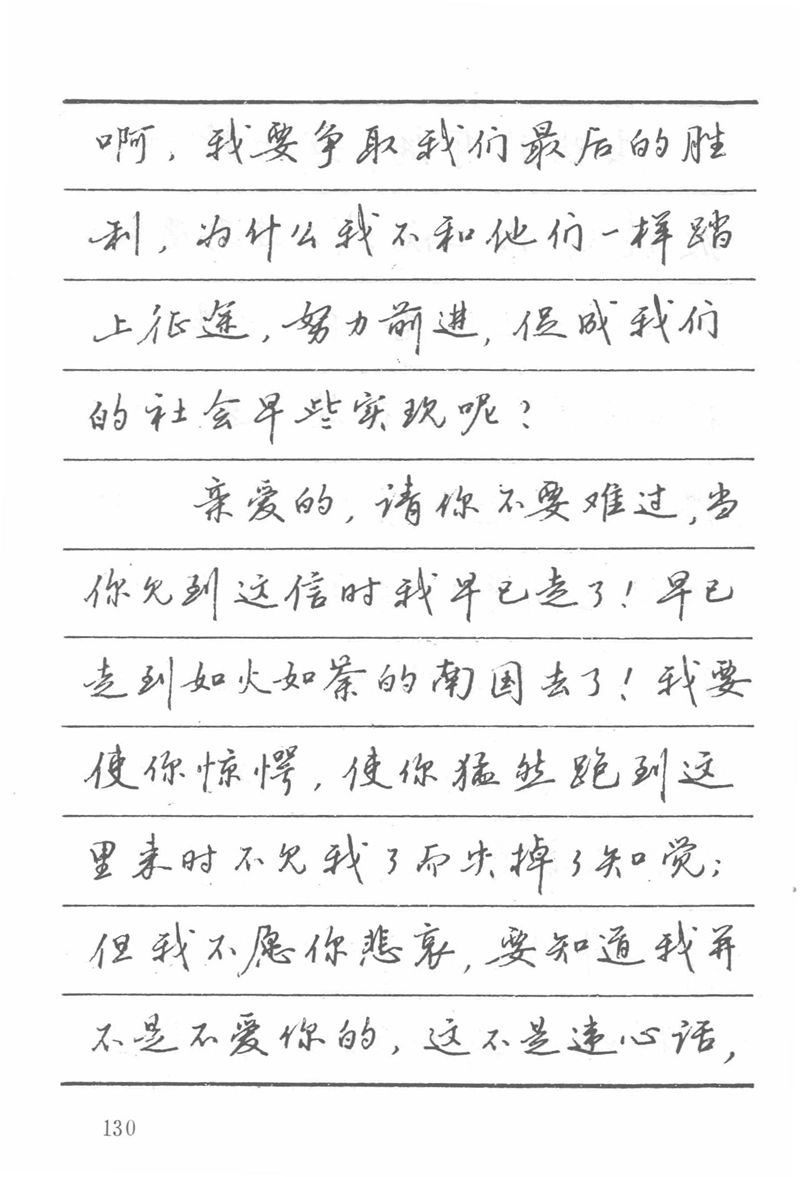 啊，我要争取我们最后的胜
利，为什么我不和他们一样踏
上征途，努力前进，促成我们
的社会早些实现呢？
亲爱的，请你不要难过，当
你见到这信时我早已走了！早已
走到如火如荼的南国去了！我要
使你惊愕，使你猛然跑到这
里来时不见我了而失掉了知觉；
但我不愿你悲哀，要知道我并
不是不爱你的，这不是违心话，
130